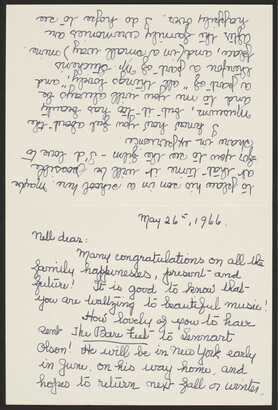 May 26th, 1966.
Nell dear:
Many congratulations on all the
family happinesses, present and
future! It is good to know that
you are waltzing to beautiful music!
How lovely of you to have
sent The Bare Feet to Lennart
Olson! He will be in New York early
in June, on his way home, and
hopes to return next fall or winter,
to place his son in a school here. Maybe
at that time it will be possible
for you to see him - I'd love to
share in experience.
I know how you feel about the
museum, but it has beauty
and to me you will always be
a part of "all things lovely", and
thereupon a part of Mr. Steichen's
place, and (in a small way) mine.
With the family ceremonies
happily over, I do hope to see